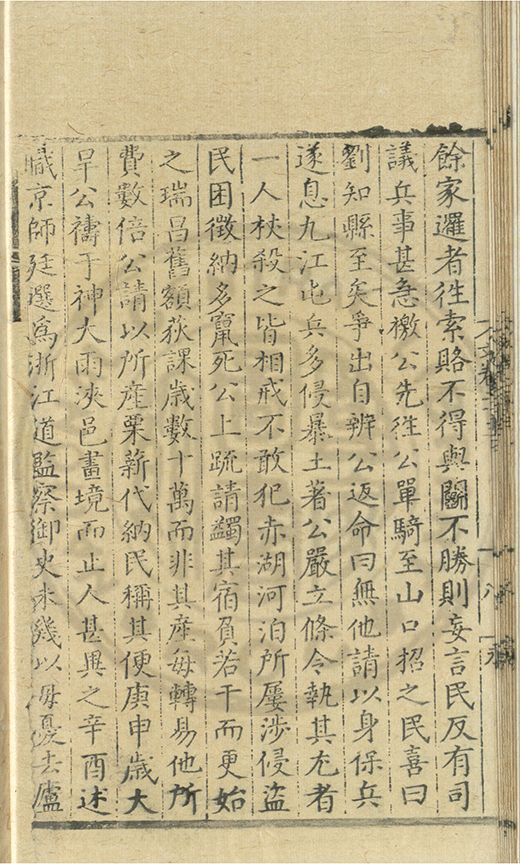 餘家邏者徃索賂不得與鬭不勝則妄言民反有司
議兵事甚急檄公先徃公單騎至山口招之民喜曰
劉知縣至矣爭出自辨公返命曰無他請以身保兵
遂息九江屯兵多侵暴土著公嚴立條令執其尤者
一人杖殺之皆相戒不敢犯赤湖河泊所屢涉侵盜
民困徵納多竄死公上疏請蠲其宿負若干而更始
之瑞昌舊額荻課歲數十萬而非其産每轉易他所
費數倍公請以所産粟薪代納民稱其便庚申歲大
旱公禱于神大雨浹邑畫境而止人甚異之辛酉述
職京師廷選爲浙江道監察御史未幾以毋憂去廬